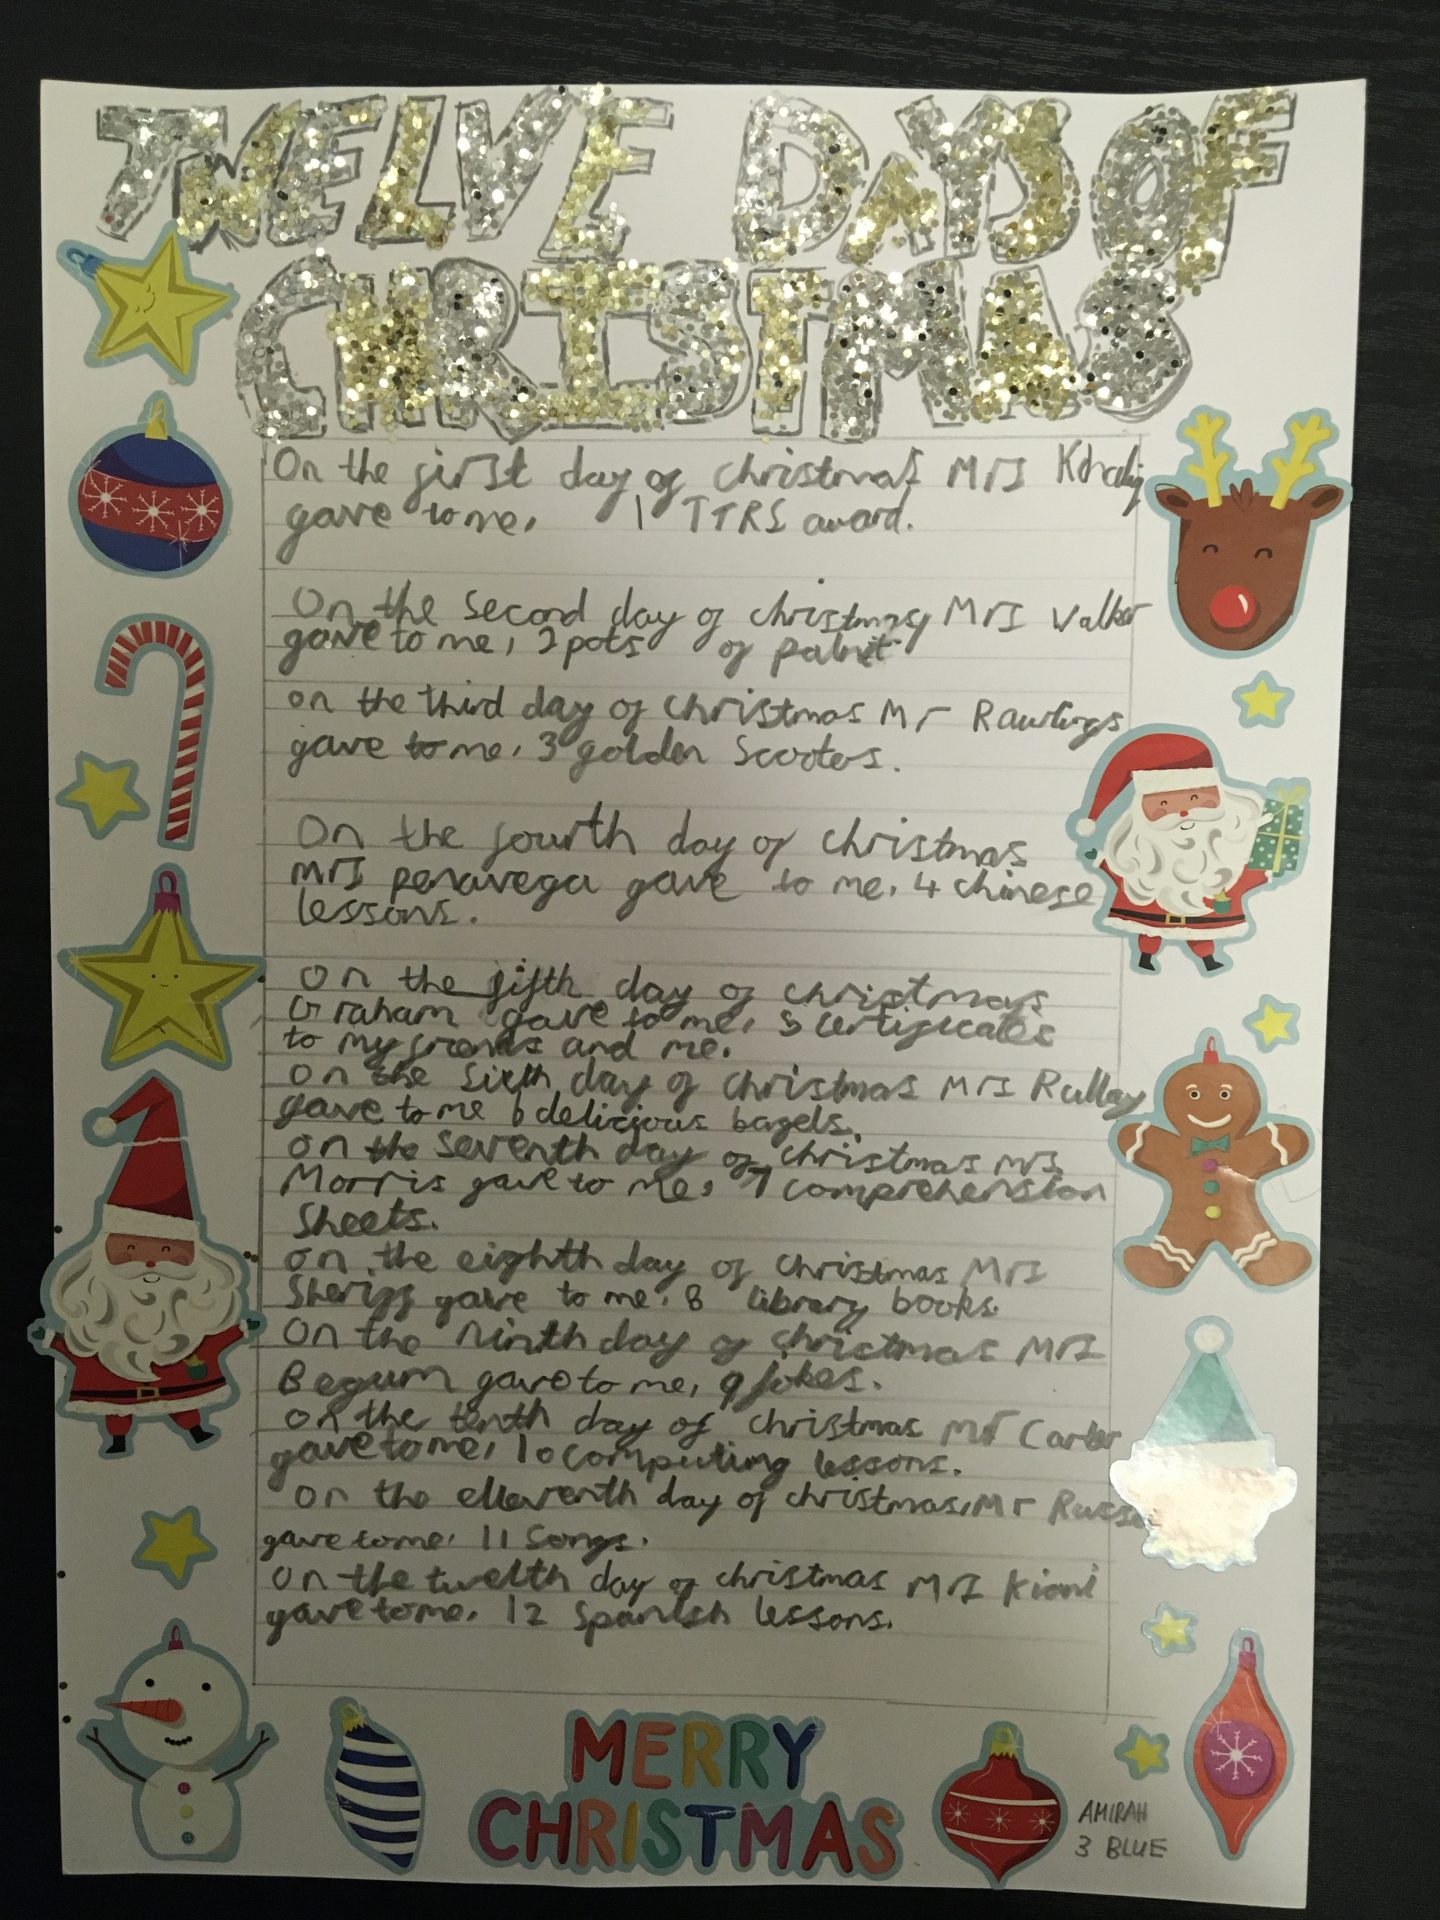 TWELVE DAYS OF
CHRISTMAS
On the first day of christmas Mrs
gave to me, 1 TTRS award.
On the second day of christmas Mrs Walker
gave to me, 2 pots of
on the third day of christmas Mr Rawlings
gave to me, 3 golden Scooters.
On the fourth day of christmas
mrs penavega gave to me, 4 chinese
lessons.
On the fifth day of christmas
Graham gave to me, 5 certificates
to my friends and me.
on the sixth day of christmas Mrs
gave to me 6 delicious bagels.
on the seventh day of christmas mrs
Morris gave to me, 7 comprehension
Sheets.
on the eighth day of christmas Mrs
Sheriff gave to me, 8 library books.
On the ninth day of christmas Mrs
Begum gave to me, 9 jokes.
on the tenth day of christmas Mr Carter
gave to me, 10 computing lessons.
on the elleventh day of christmas, Mr
gave to me, 11 Songs.
On the twelth day of christmas Mrs Kiani
gave to me, 12 Spanish lessons.
MERRY
CHRISTMAS
AMIRAH
3 BLUE